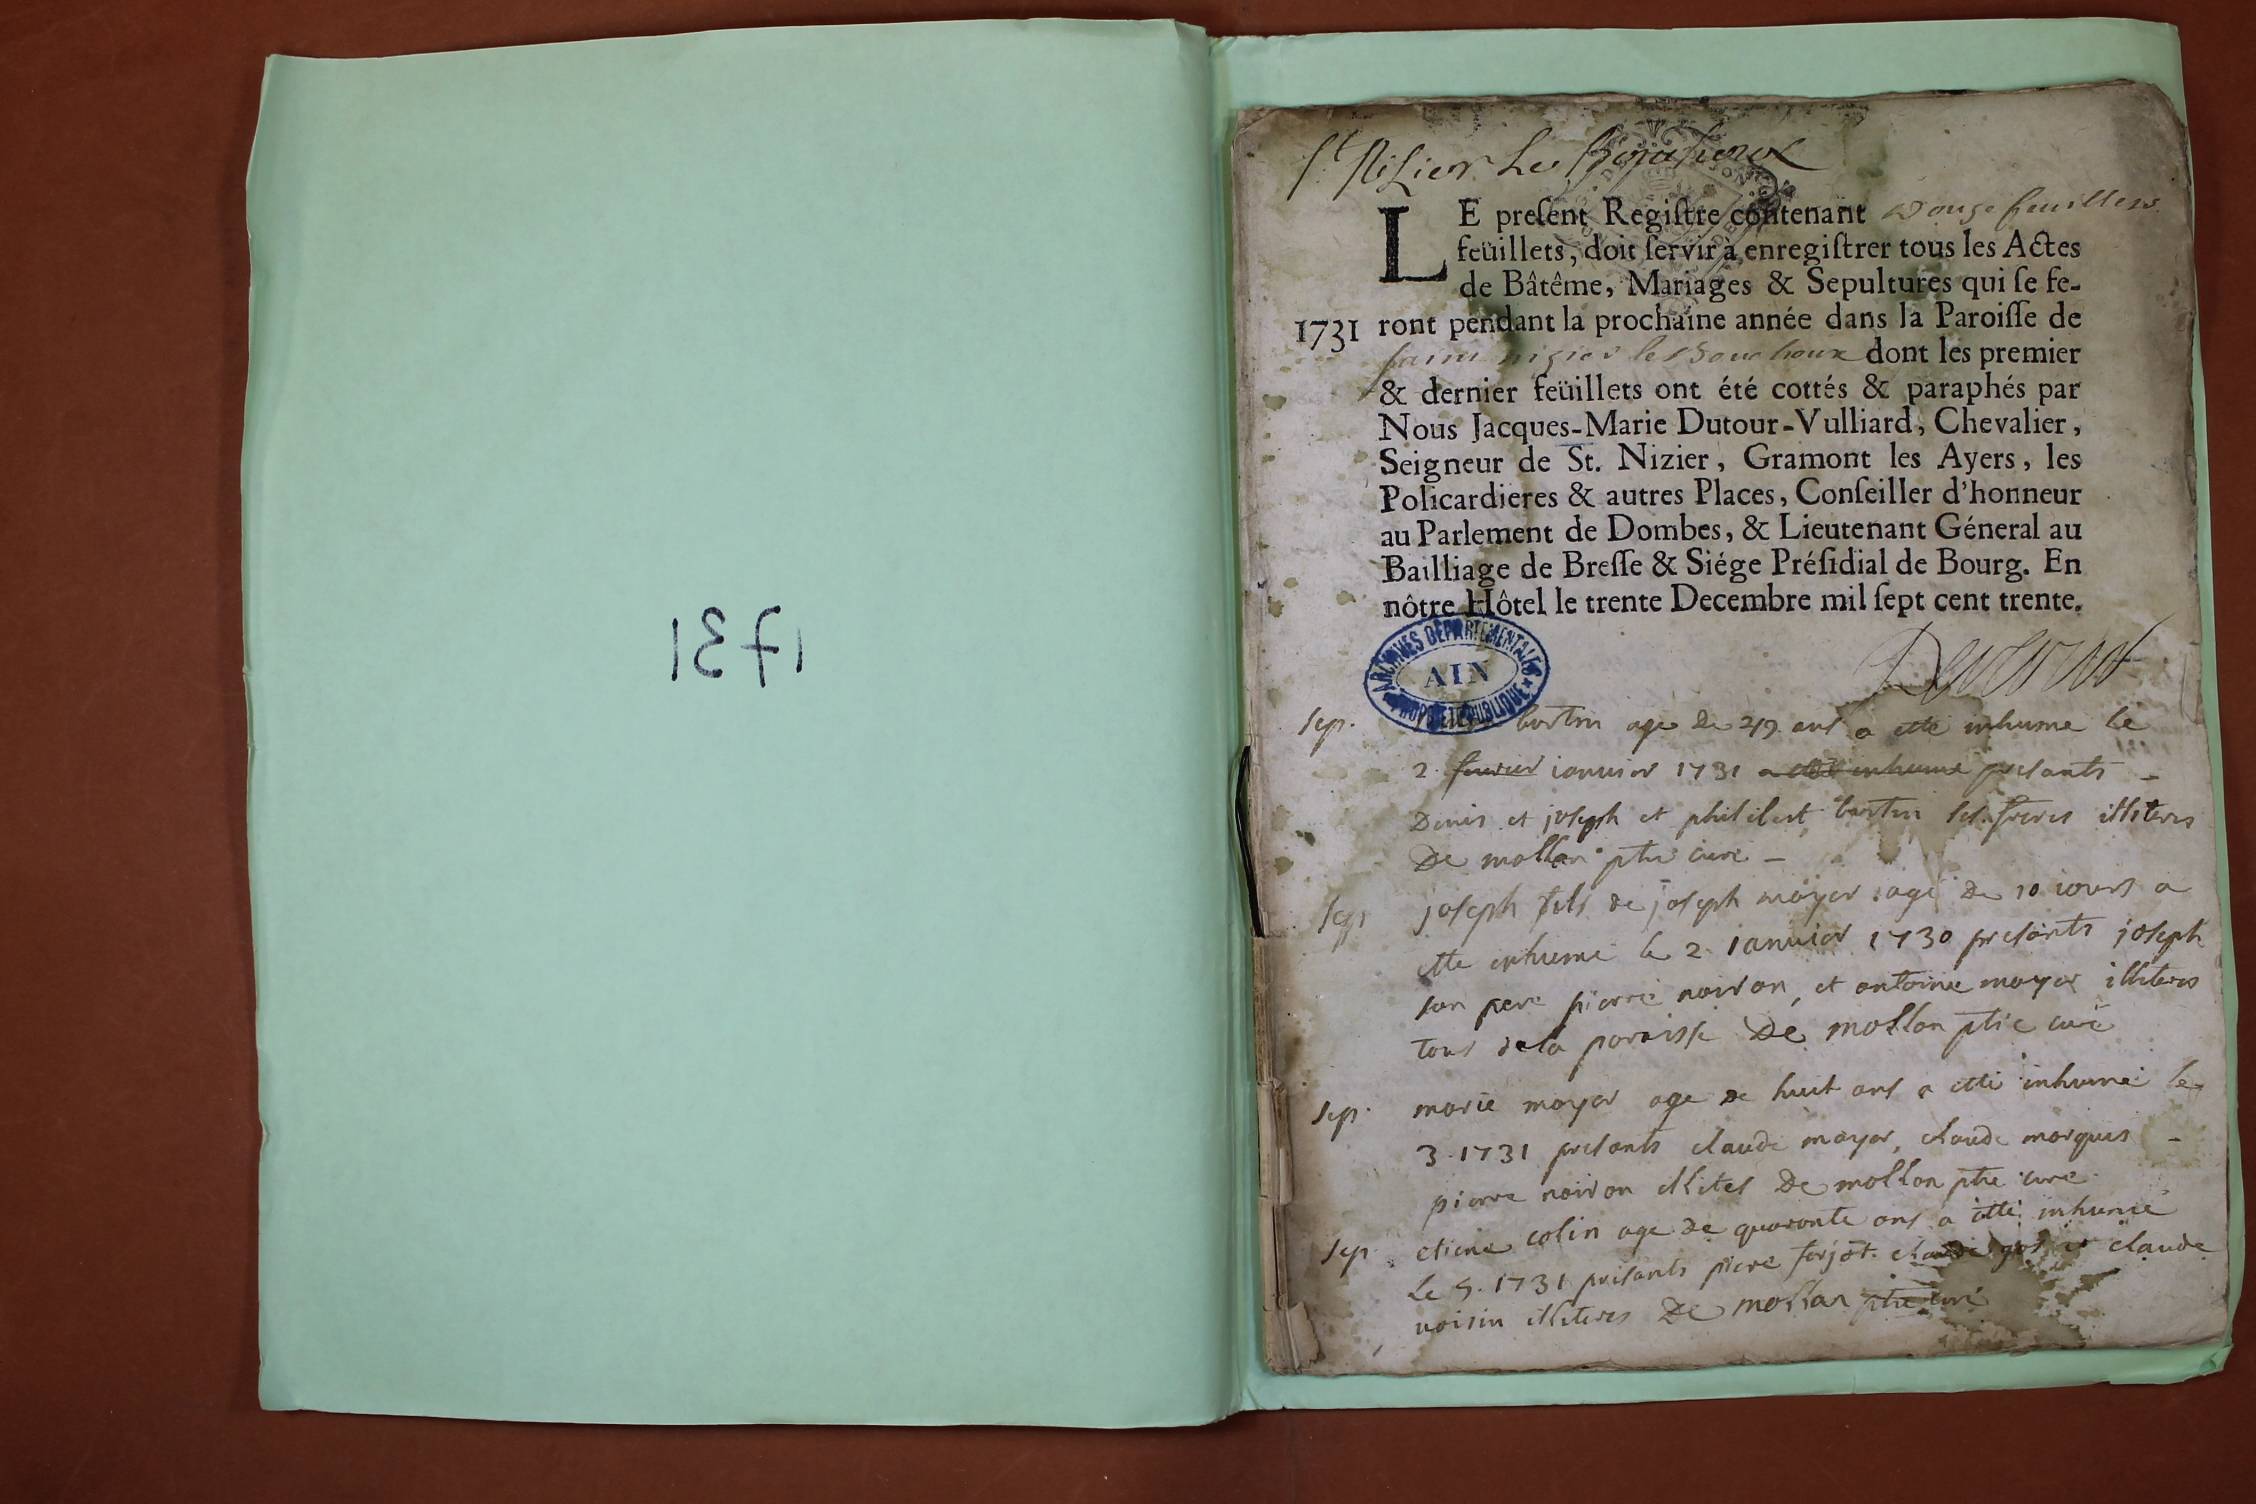 1731
St Nisier Le Bouchoux
LE preſent Regiſtre contenant Douze feuillets
feüillets, doit ſervir à enregiſtrer tous les Actes
de Bâtême, Mariages & Sepultures qui ſe fe-
1731 ront pendant la prochaine année dans la Paroiſſe de
saint nizier le Bouchoux dont les premier
& dernier feüillets ont été cottés & paraphés par
Nous Jacques-Marie Dutour-Vulliard, Chevalier,
Seigneur de St. Nizier, Gramont les Ayers, les
Policardieres & autres Places, Conſeiller d'honneur
au Parlement de Dombes, & Lieutenant Géneral au
Bailliage de Breſſe & Siége Préſidial de Bourg. En
nôtre Hôtel le trente Decembre mil ſept cent trente.
ARCHIVES DEPARTEMENTALES
AIN
PROPRIETE PUBLIQUE
Sep. bertin age de ans a ette inhume le
2 fevrier ianvier 1731 a ette inhume presants
Denis et joseph et philibert bertin ses freres illiteres
De mollan ptre cure
Sep joseph fils de joseph moyer agé de 10 iours a
ette inhumé le 2 ianvier 1730 presants joseph
son pere pierre noiron, et antoine moyer illiteres
tous dela paroisse De mollan ptre curé
Sep. marie moyer age de huit ans a ette inhumé le
3. 1731 presants claude moyer, claude morquis
pierre noiron illites De mollan ptre cure
Sep etiene colin age de quaronte ans a ette inhumé
Le 5. 1731 presants piere forjot claude et claude
voisin illiteres De mollan ptre curé